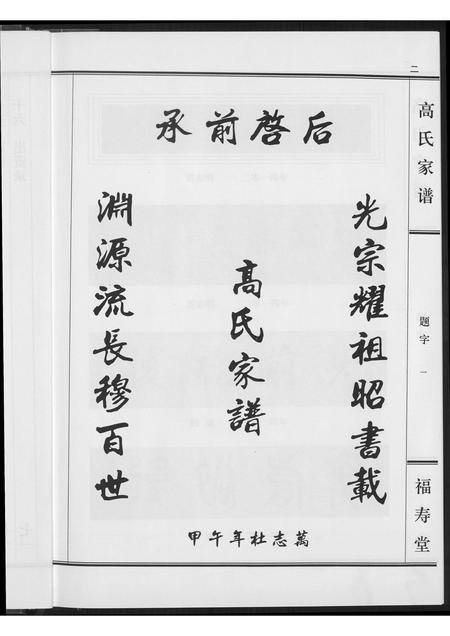 二
高氏家谱
题字
一
福寿堂
承前啓后
光宗耀祖昭書載
高氏家譜
淵源流長穆百世
甲午年杜志萬